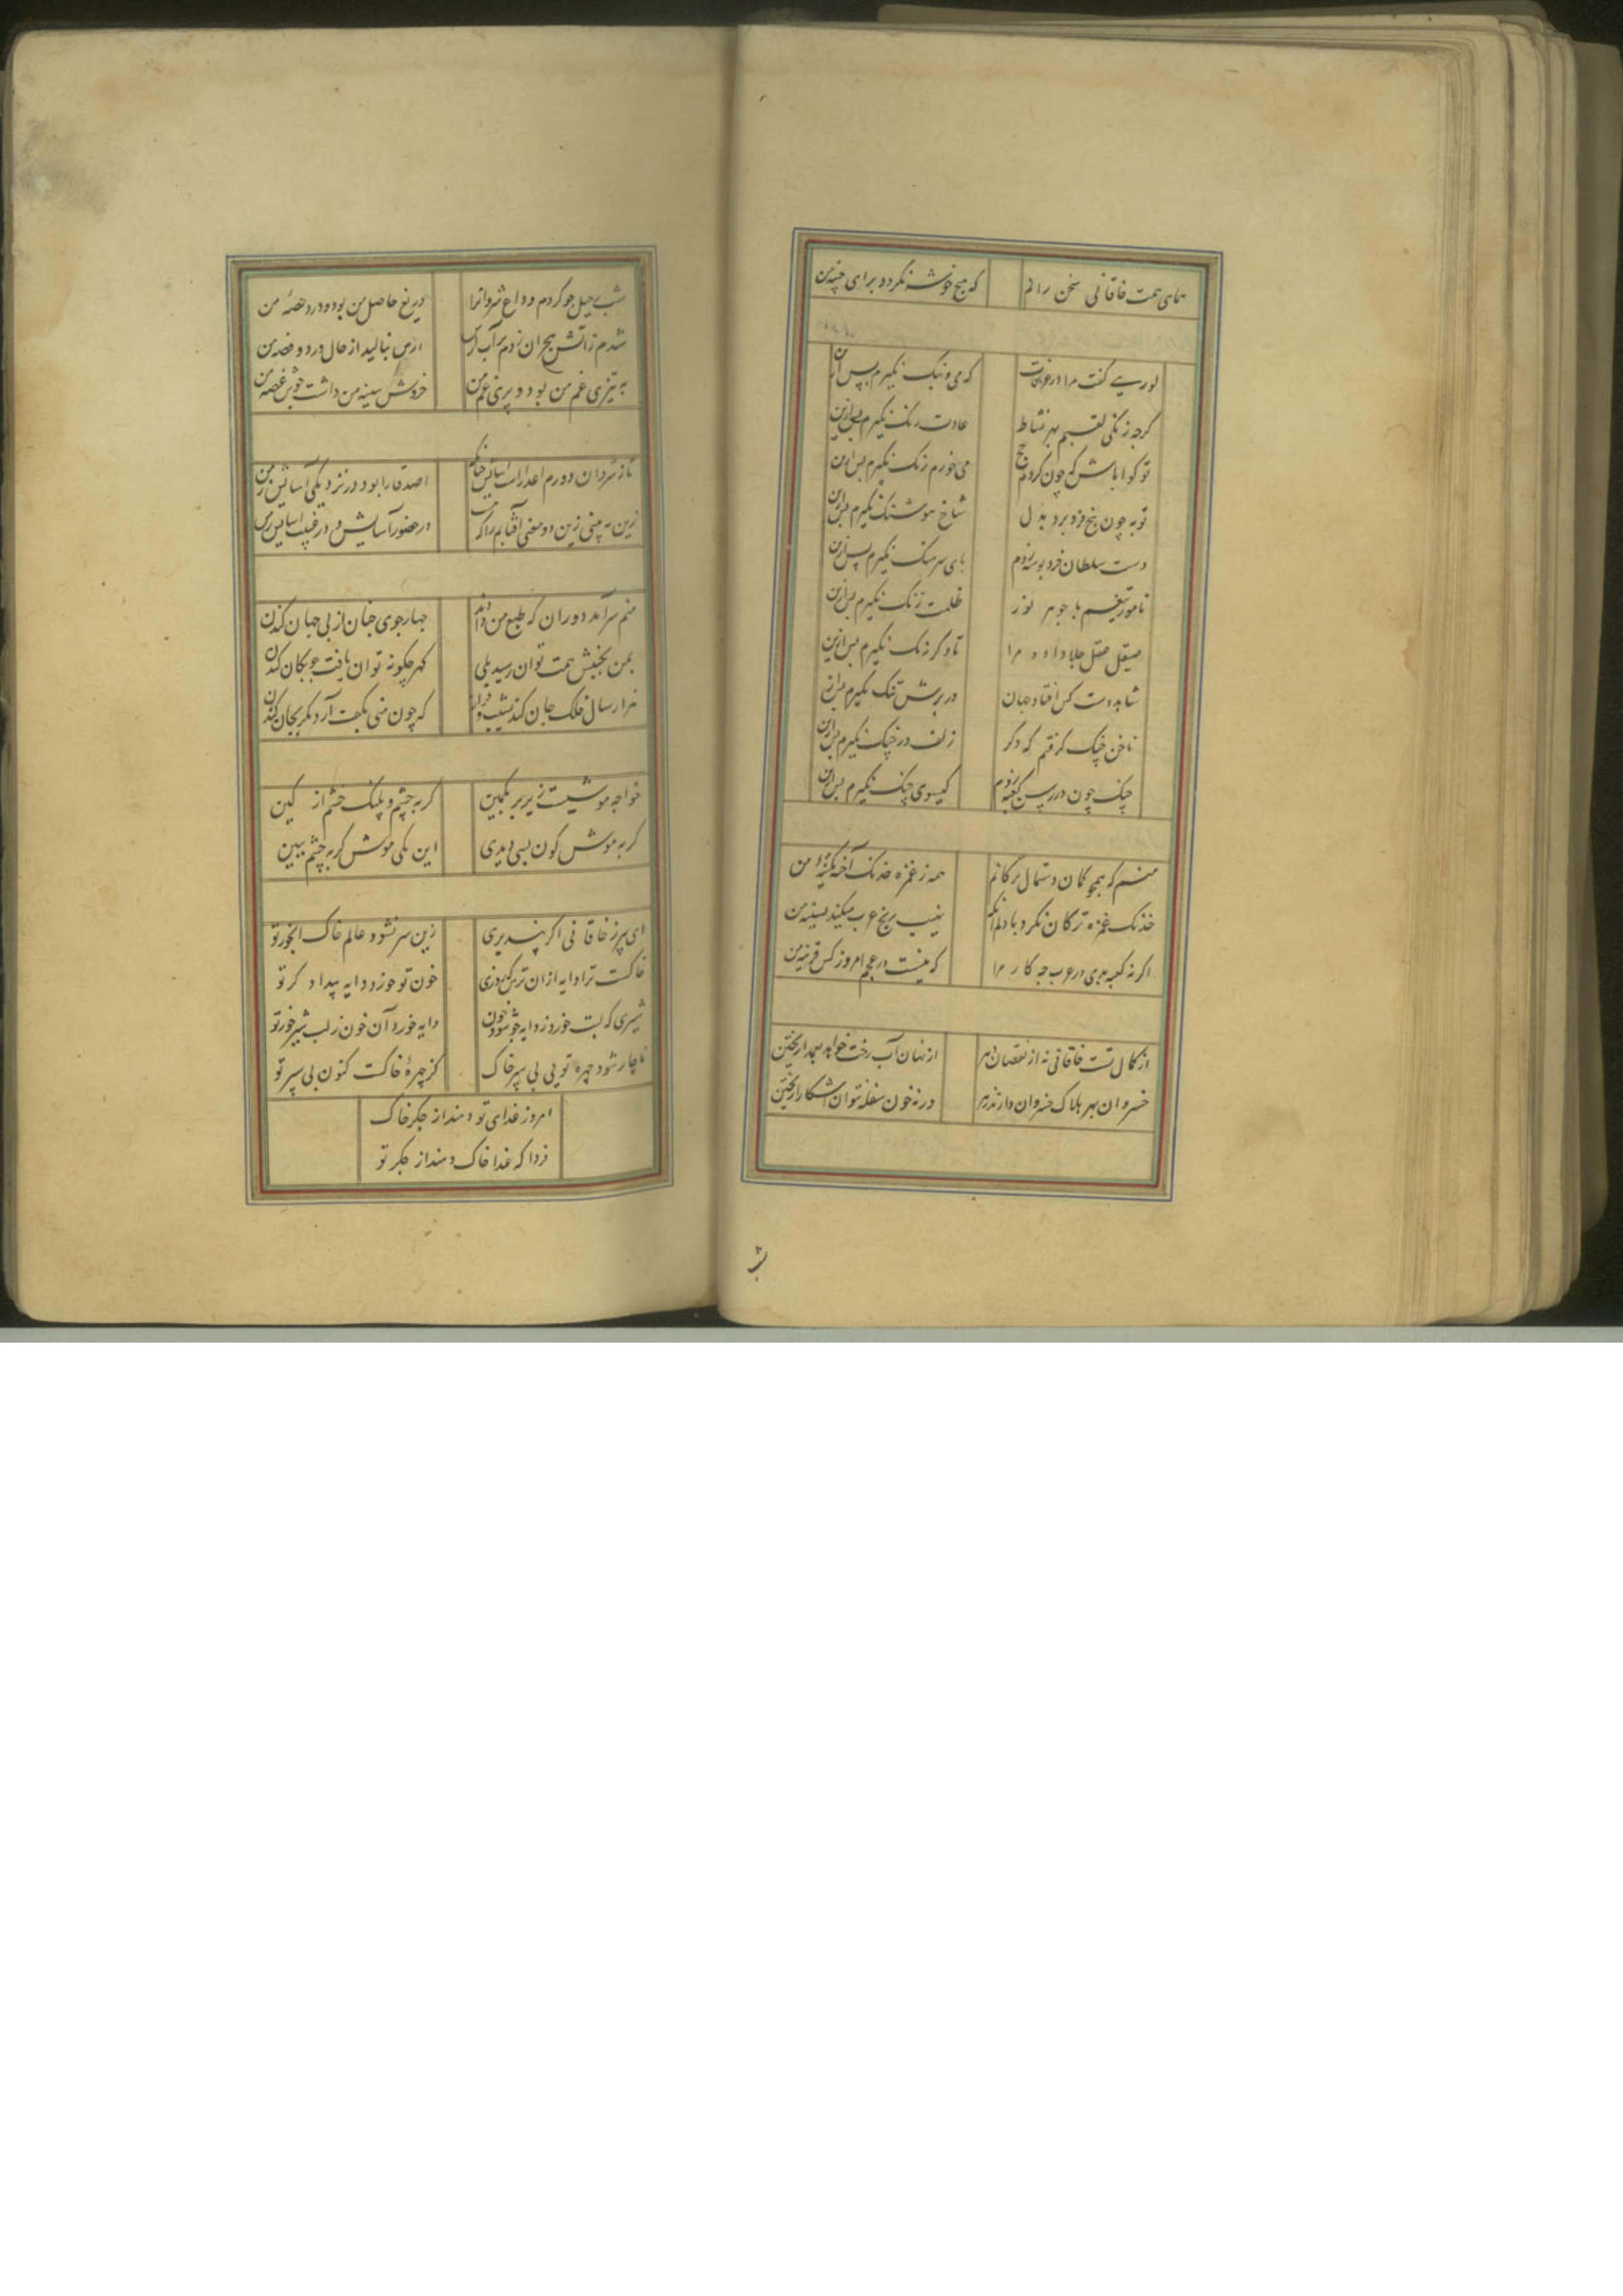 همای همت خاقانی سخن رانم که هیچ خوشه نکردد برای چینه من
لوریی کفت مرا در عرفات که می و بنک نکیرم پس ازین
کرجه زنکی لقبم بهر نشاط عادت زنک نکیرم پس ازین
تو کوا باش که چون کردم حج می خورم زنک نکیرم پس ازین
توبه چون بیخ فرو برد بدل شاخ هر شنک نکیرم پس ازین
دست سلطان خرد بوسه زدم پای سرهنک نکیرم پس ازین
نامور تیغم با جوهر نور ظلمت زنک نکیرم پس ازین
صیقل عقل جلا داد مرا تا دکر زنک نکیرم پس ازین
شاهد دست کش افتاد جهان در برش تنک نکیرم پس ازین
ناخن چنک کرفتم که دکر زلف در چنک نکیرم پس ازین
چنک چون در رسن کعبه زدم کیسوی چنک نکیرم پس ازین
منم که همچو کمان دستمال ترکانم همه ز غمزه خدنک آخته بکینه من
خدنک غمزه ترکان نکرد با دلم آنکه نهیب رنج عرب میکند بسینه من
اکر نه کعبه بدی در عرب چه کار مرا که نیست در عجم امروز کس قرینه من
از کمال تست خاقانی نه از نقصان دهر از نهان آب رخت خواهد بعمدا ریختن
خسروان بهر هلاک خسروان دارند زهر ورنه خون سفله نتوان آشکارا ریختن
ش
شب رحیل جو کردم وداع شروانرا دریغ حاصل من بود و درد حصهٔ من
شدم ز آتش هجران زدم بر آب ارس ارس بنالید از حال درد و قصه من
به تیزی غم من بود و پری غم من خروش سینه من داشت جوش غصه من
تا ز شروان دورم اعدا راست آسایش اصدقا را بود در نزدیکی آسایش ز من
زین به بینی زین دو معنی آفتابم راکه در حضور آسایش و در غیب آسایش ز من
منم سرآمد دوران که طبع من داند جهار جوی جنان از پی جهان کندن
بمن بجنبش همت توان رسید بلی کهر چکونه توان یافت جو بکان کندن
هزار سال فلک جان کند نشیب و فراز که چون منی بکف آرد مکر بجان کندن
خواجه موشیست زیربر بکمین کربه چشم و پلنک خشم از کین
کربه موش کون بسی دیدی این یکی موش کربه چشم ببین
ای پرز خاقانی اکر پند پذیری زین سر نشود عالم خاک آبخور تو
خاکست ترا دایه ازان ترس که روزی خون تو خورد دایه بیدادکر تو
شیری که لبت خورد ز دایه جو شود خون دایه خورد آن خون ز لب شیرخور تو
ناچار شود چهره تو پی سپر خاک کز چهرهٔ خاکست کنون پی سپر تو
امروز غذای تو دهند از جکر خاک
فردا که غذا خاک دهند از جکر تو